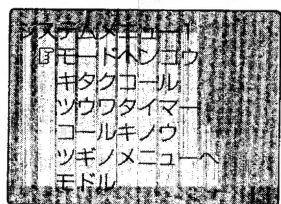 システムメニュー1
☞モードヘンコウ
キタクコール
ツウワタイマー
コールキノウ
ツギノメニューへ
モドル